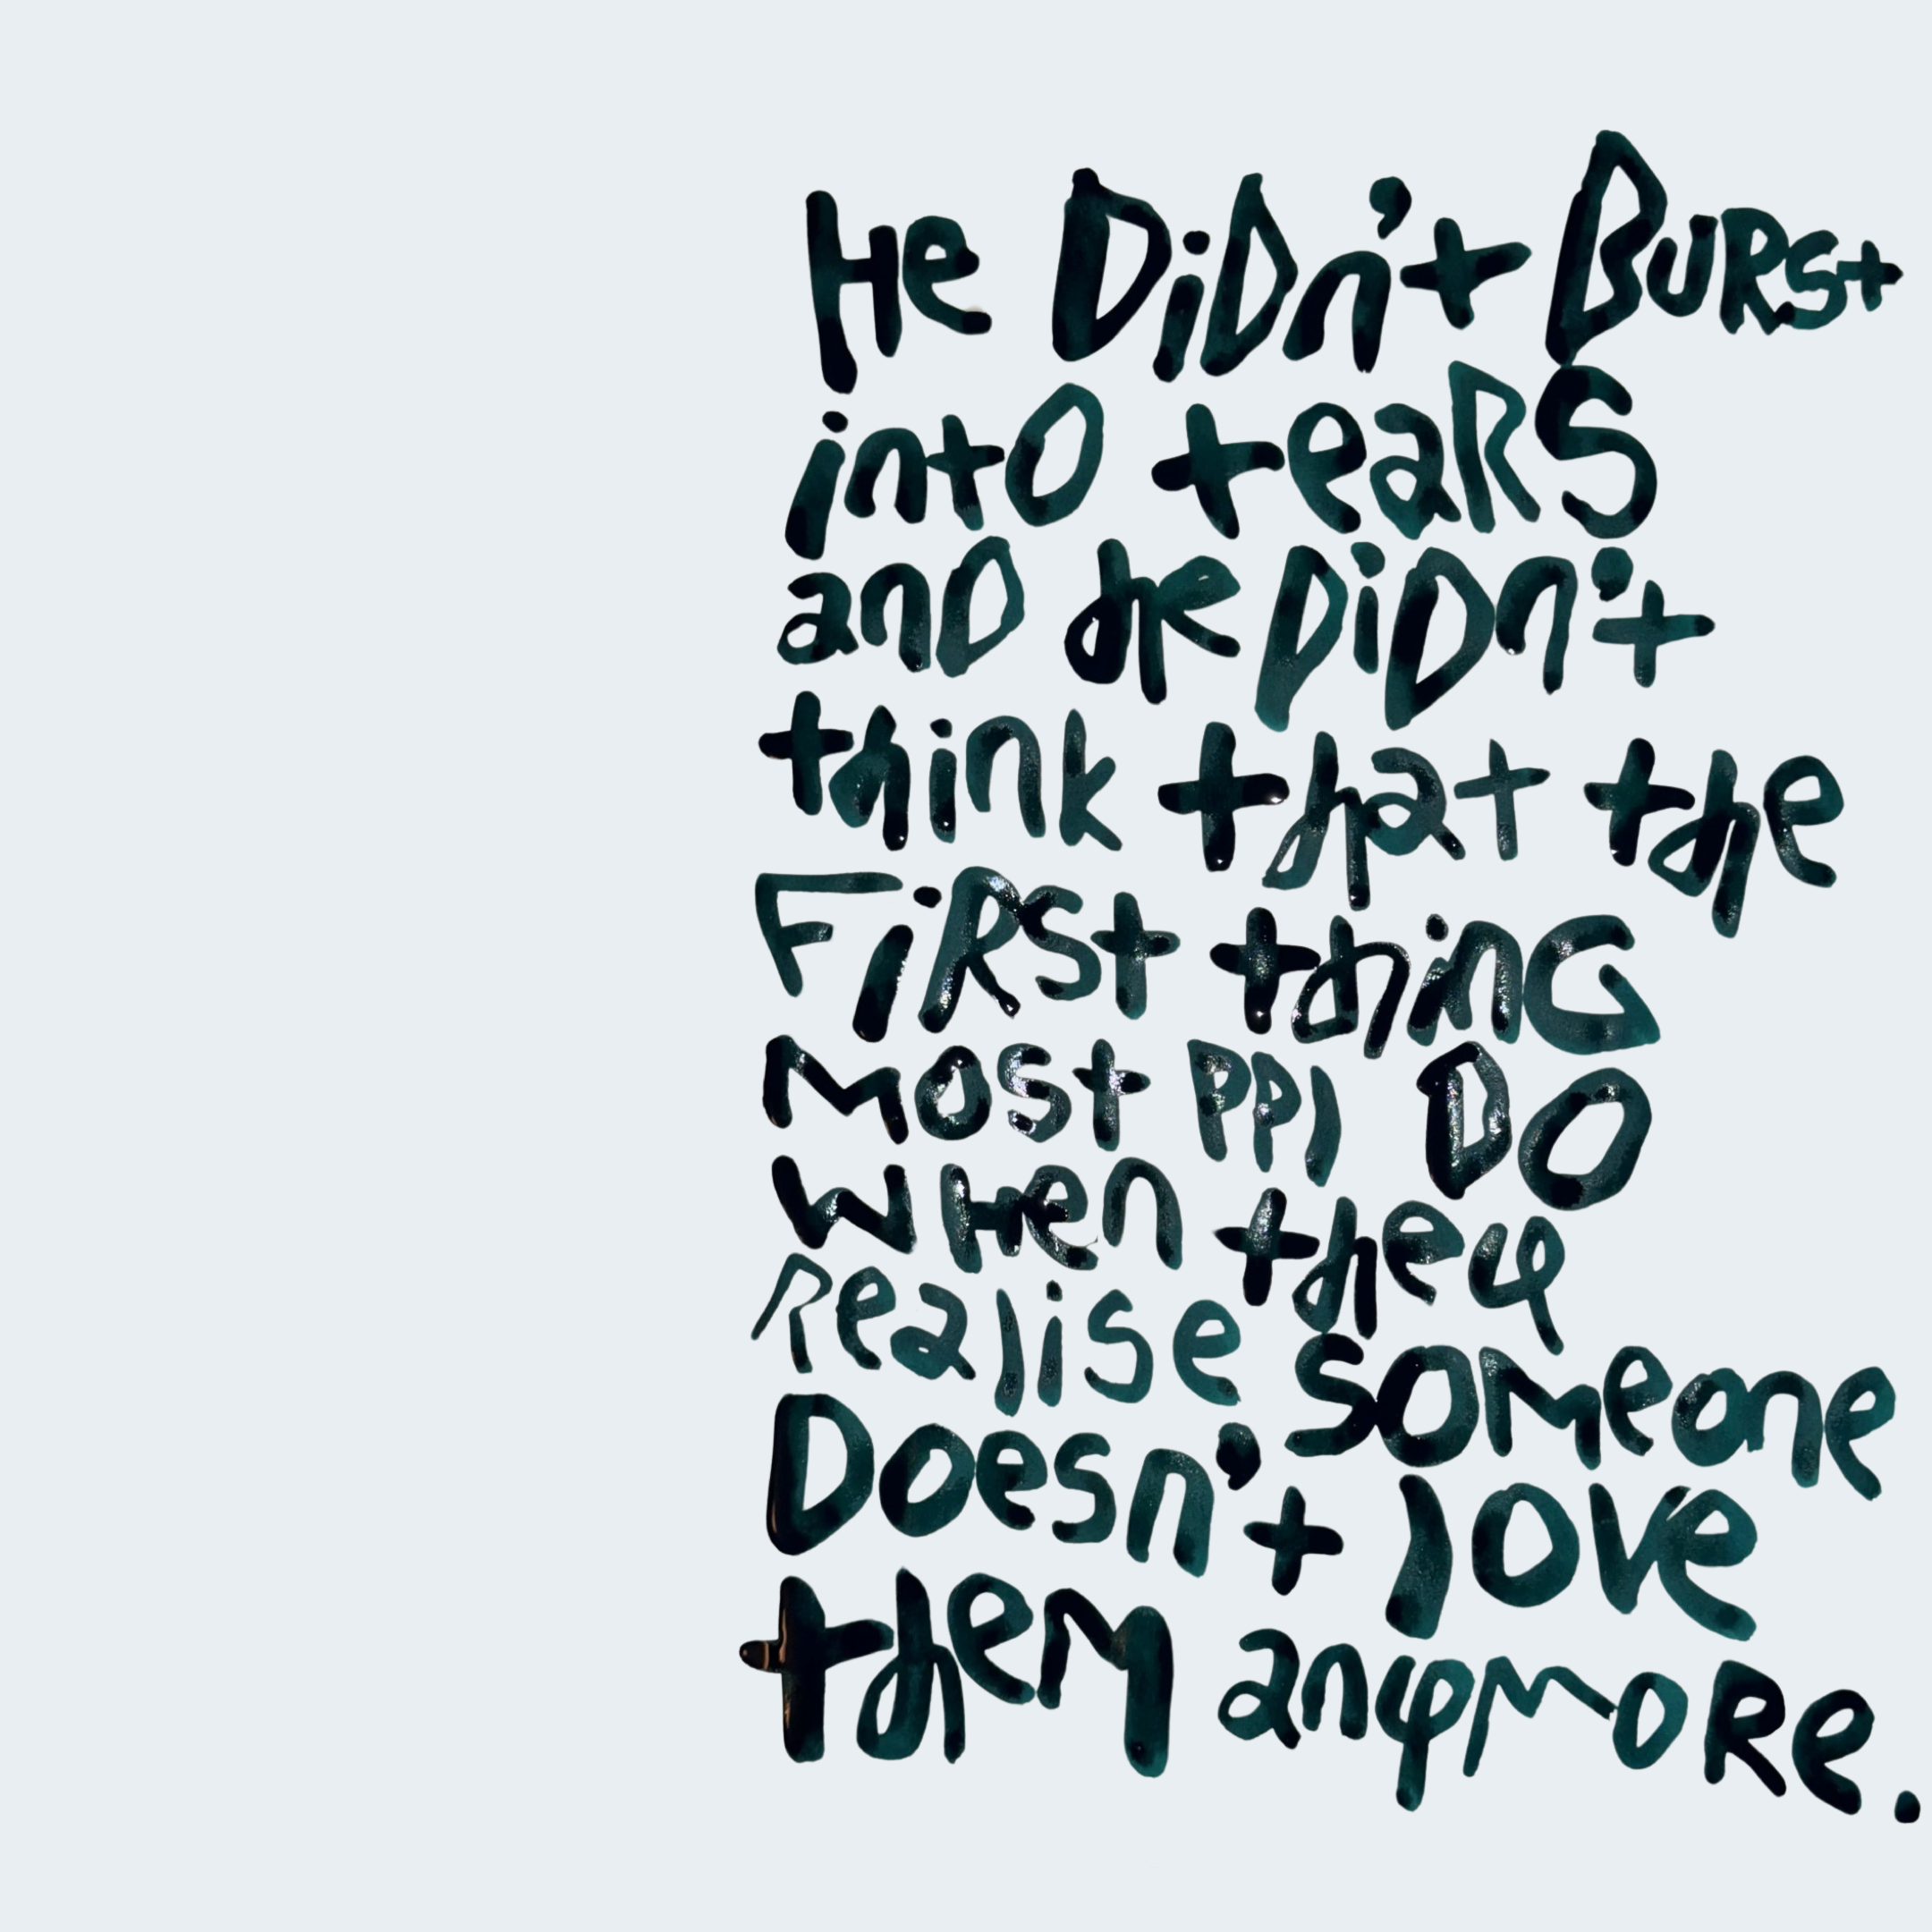 He DiDn't BURSt
intO teaRS
anD he DiDn't
think that the
FiRSt thinG
MOst ppl DO
WHen they
Realise SOMeone
Doesn't lOve
theM anyMoRe.